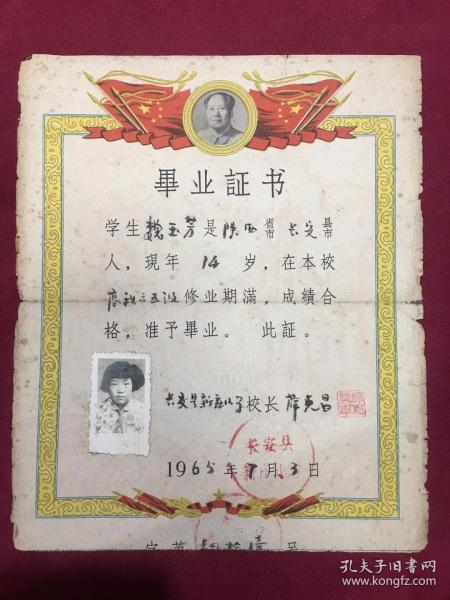 畢业証书
学生魏玉芳是陕西省市长安县市
人，現年14岁，在本校
修业期滿，成績合
格，准予畢业。此証。
长安县新 小学校长薛克昌
长安县
1965年7月3日
字第 号
孔夫子旧书网
www.kongfz.com